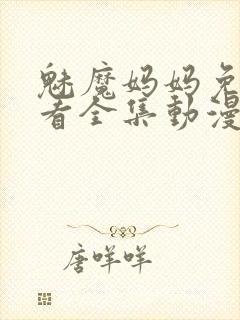 魅魔妈妈免
看全集動漫
唐咩咩